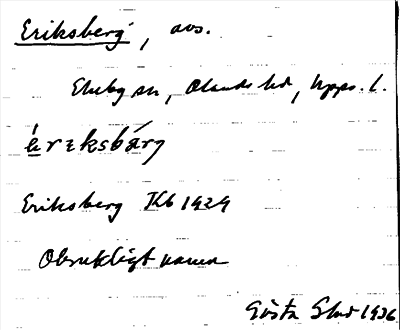 Eriksberg, avs.
Ekeby sn, Olands hd, Upps. l.
éreksbárg
Eriksberg Kb 1929
Obrukligt namn
Gösta 1936